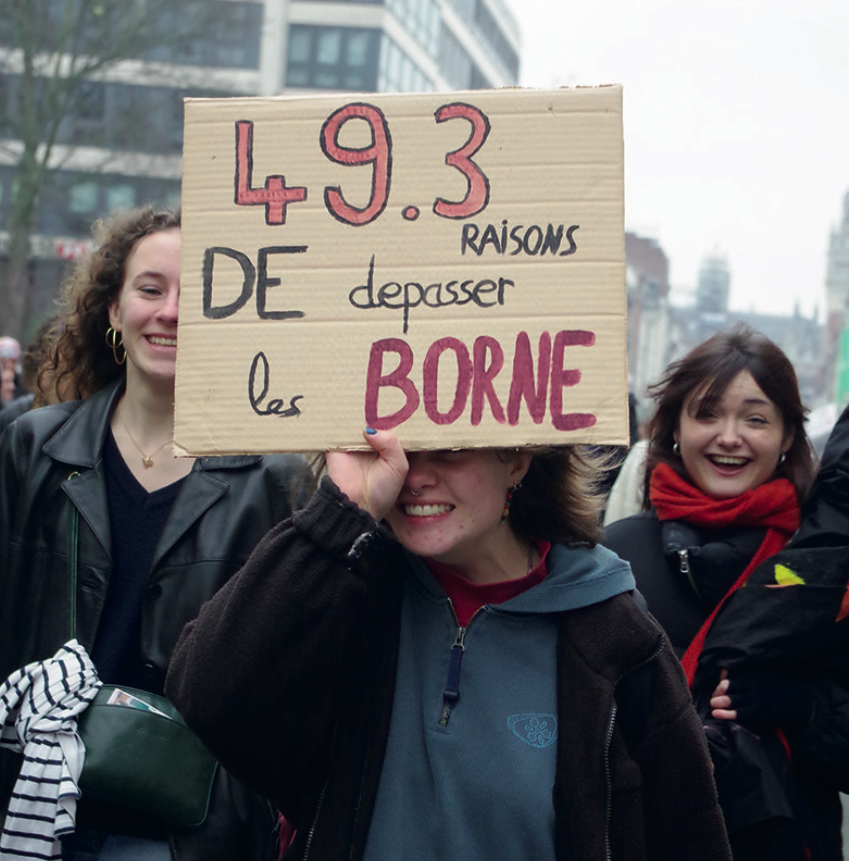 49.3
RAiSONS
DE depasser
les BORNE